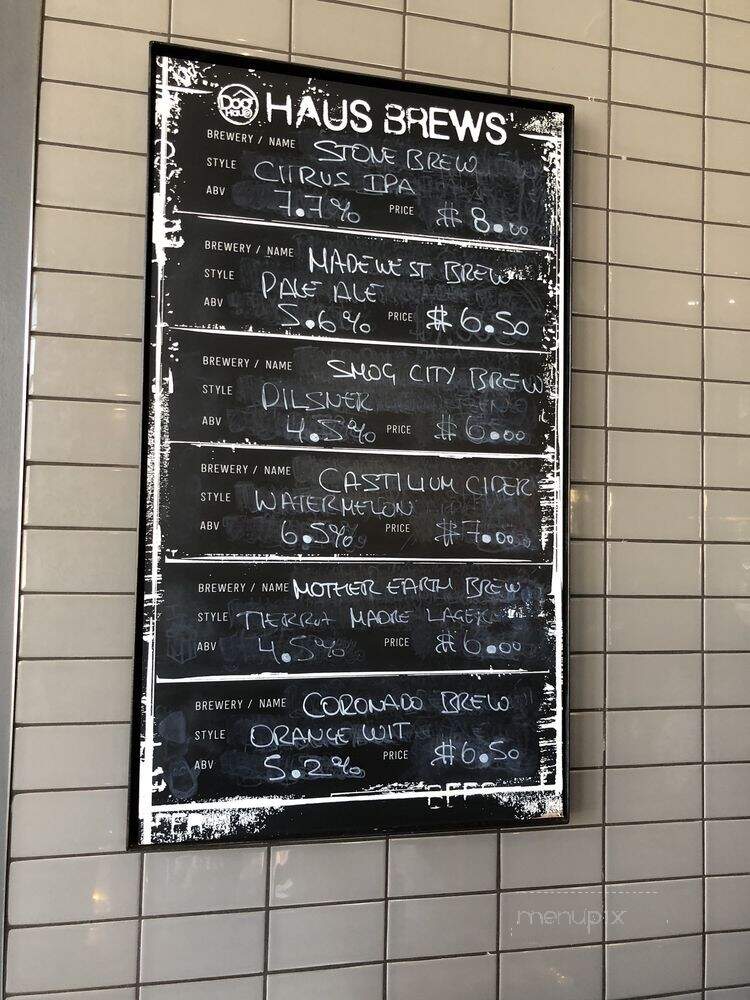 DOG HAUS HAUS BREWS
BREWERY / NAME STONE BREW
STYLE CITRUS IPA
ABV 7.7% PRICE $ 8.00
BREWERY / NAME MADEWEST BREW
STYLE PALE ALE
ABV 5.6% PRICE $ 6.50
BREWERY / NAME SMOG CITY BREW
STYLE PILSNER
ABV 4.5% PRICE $ 6.00
BREWERY / NAME CASTILIUM CIDER
STYLE WATERMELON
ABV 6.5% PRICE $ 7.00
BREWERY / NAME MOTHER EARTH BREW
STYLE TIERRA MADRE LAGER
ABV 4.5% PRICE $ 6.00
BREWERY / NAME CORONADO BREW
STYLE ORANGE WIT
ABV 5.2% PRICE $6.50
menupix